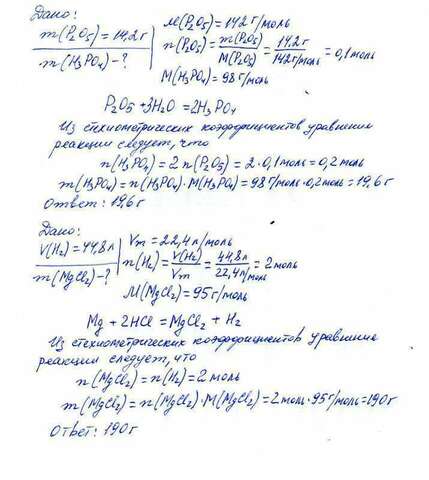 Дано:
m(P₂O₅) = 14,2 г
m(H₃PO₄) - ?
M(P₂O₅) = 142 г/моль
n(P₂O₅) = m(P₂O₅)/M(P₂O₅) = 14,2 г/142 г/моль = 0,1 моль
M(H₃PO₄) = 98 г/моль
P₂O₅ + 3H₂O = 2H₃PO₄
Из стехиометрических коэффициентов уравнения
реакции следует, что
n(H₃PO₄) = 2 n(P₂O₅) = 2·0,1 моль = 0,2 моль
m(H₃PO₄) = n(H₃PO₄)·M(H₃PO₄) = 98 г/моль·0,2 моль = 19,6 г
Ответ: 19,6 г
Дано:
V(H₂) = 44,8 л
m(MgCl₂) - ?
Vm = 22,4 л/моль
n(H₂) = V(H₂)/Vm = 44,8 л/22,4 л/моль = 2 моль
M(MgCl₂) = 95 г/моль
Mg + 2HCl = MgCl₂ + H₂
Из стехиометрических коэффициентов уравнение
реакции следует, что
n(MgCl₂) = n(H₂) = 2 моль
m(MgCl₂) = n(MgCl₂)·M(MgCl₂) = 2 моль·95 г/моль = 190 г
Ответ: 190 г